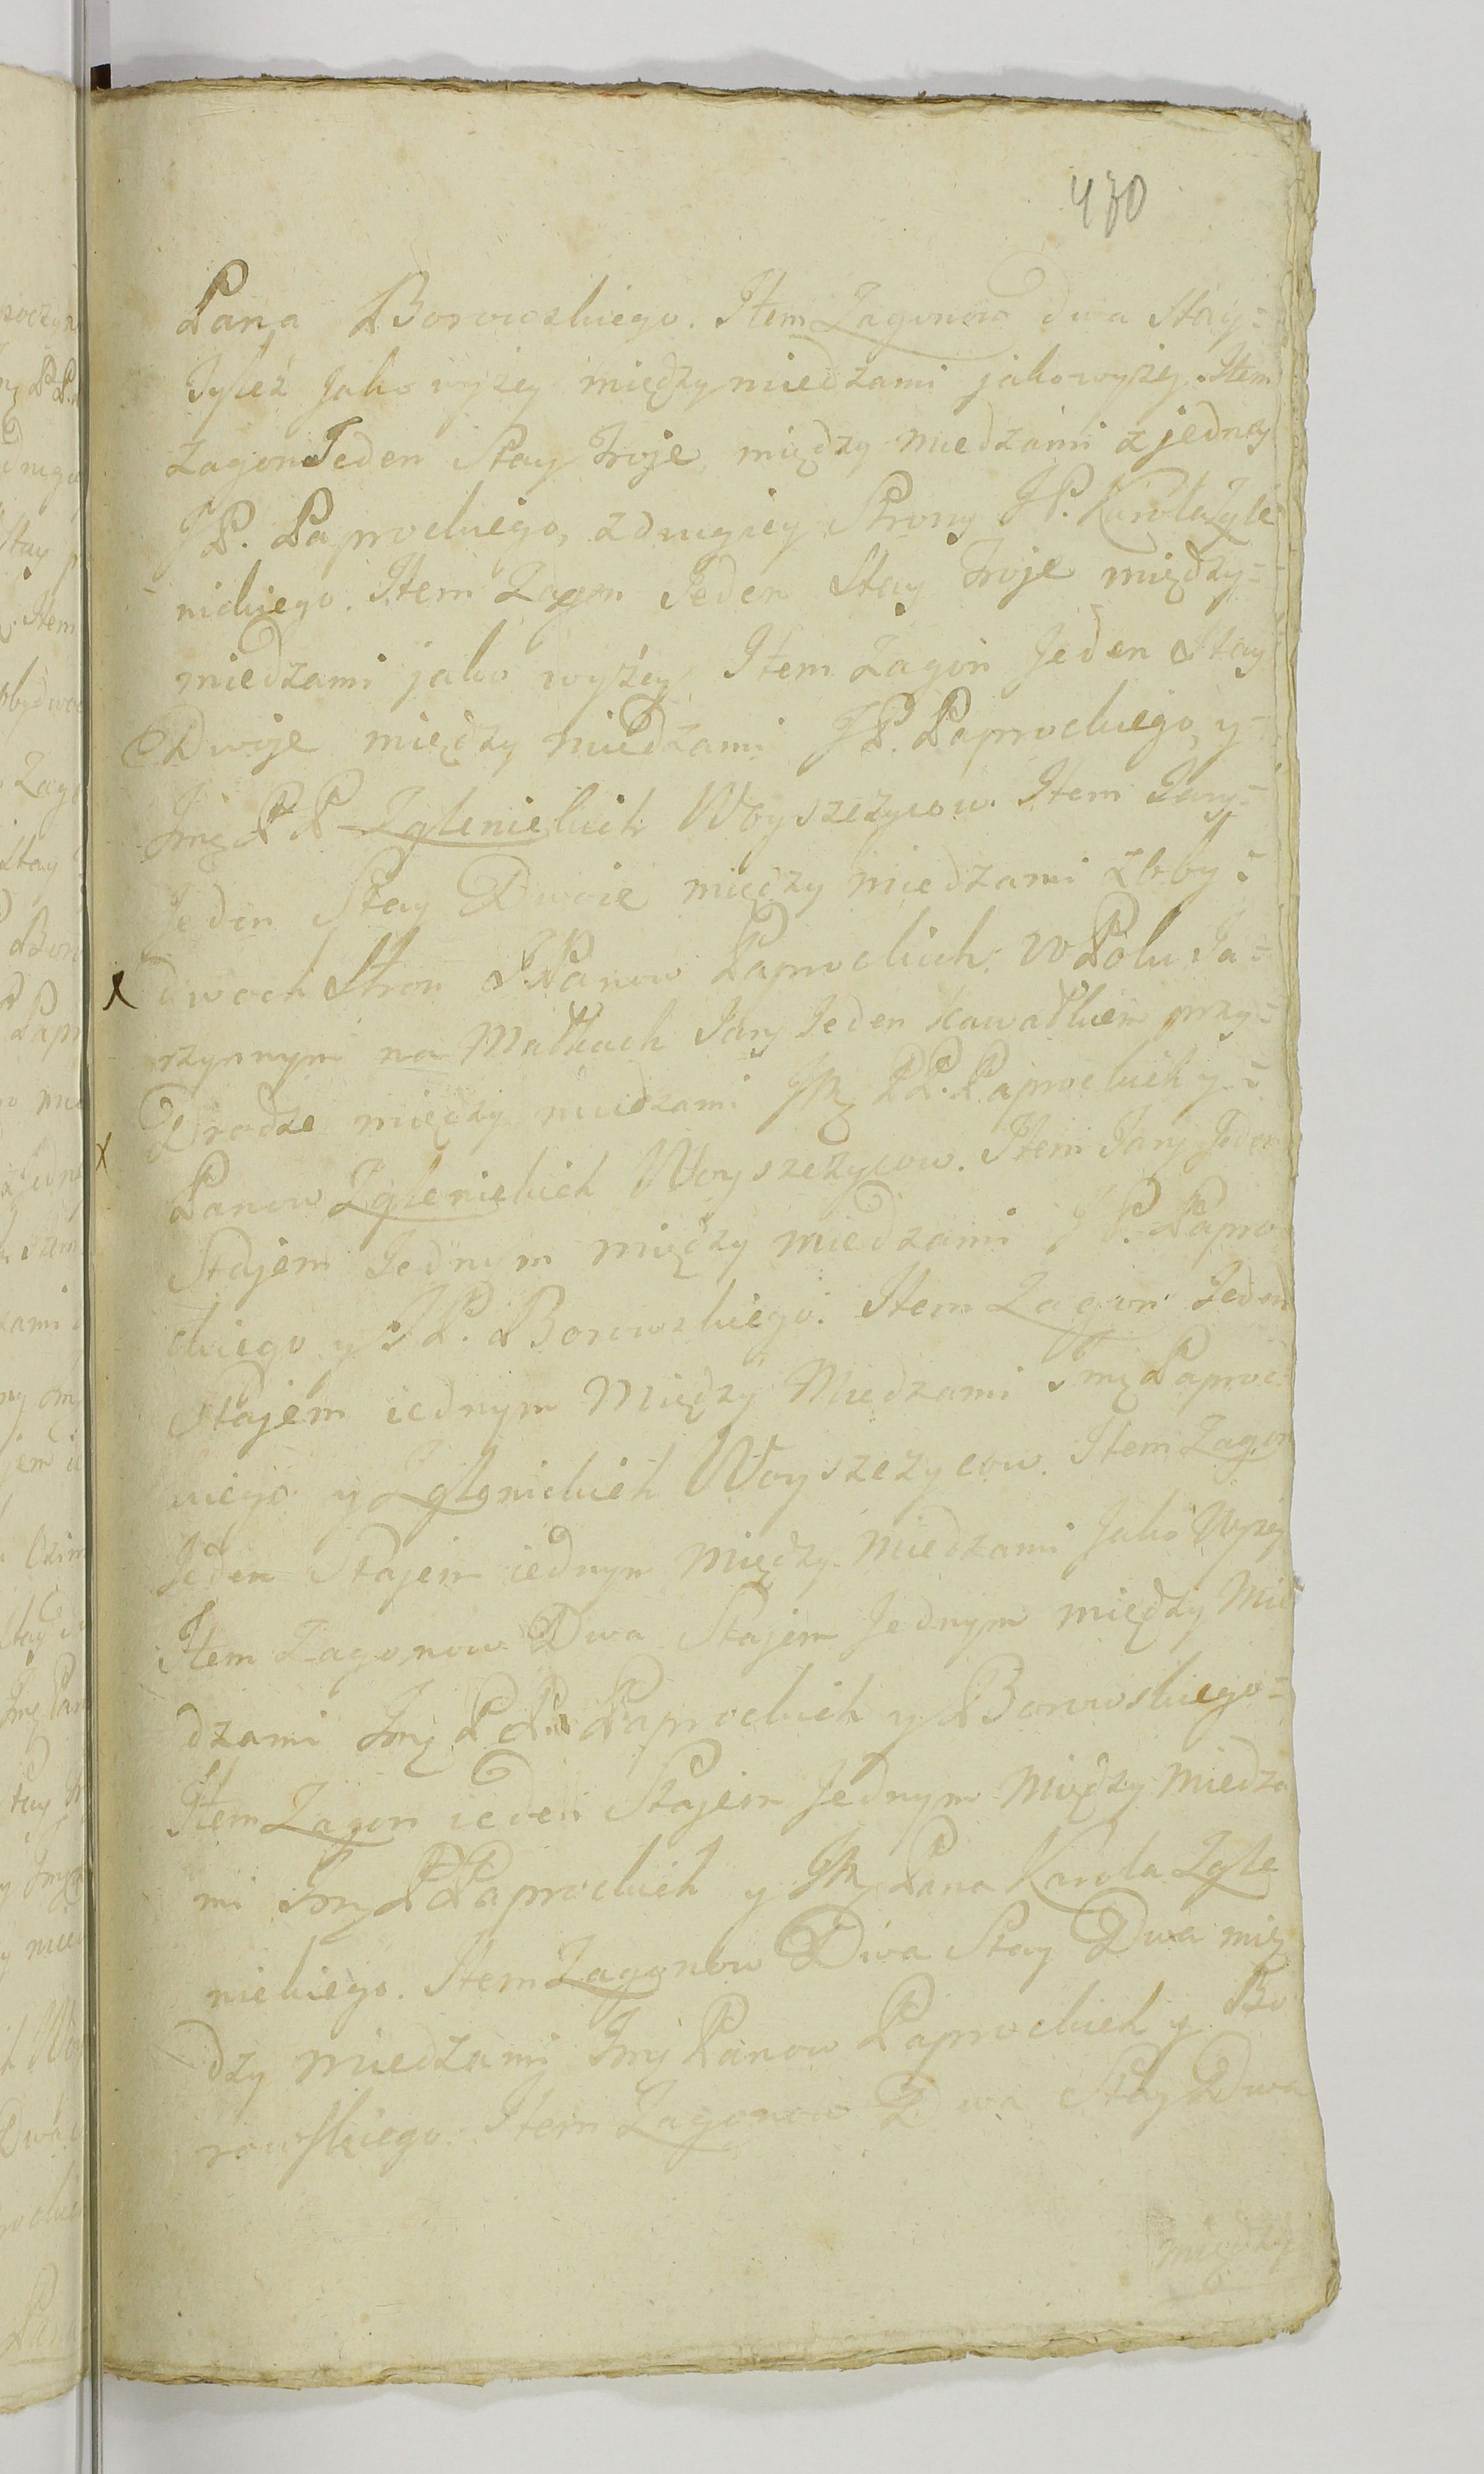 430
Pana Borowskiego. Item Zagonow dwa Stay=
Tyleż Jako wyżey między miedzami jako wyżey. Item
Zagon Jeden Stay Troje, między miedzami z jedney
JP. Paprockiego, z drugiey Strony JP. Karola Zgle
nickiego. Item Zagon Jeden Stay Troje między=
miedzami jako wyżey Item Zagon Jeden Stay
Dwoje między miedzami JP. Paprockiego, y=
Jmę PP Zglenickich Woyszczycow. Item Jary=
Jeden Stay Dwoie między miedzami z oby=
dwoch Stron JPanow Paprockich. W Polu Ja=
rzynnym na Matkach Jary Jeden kawałkiem przy=
Drodze między miedzami Jm PP. Paprockich y=
Panow Zglenickich Woyszczycow. Item Jary Jeden
Stajem Jednym między miedzami JP. Papro
ckiego y JP. Borowskiego. Item Zagon Jeden
Stajem iednym Między Miedzami Jmę Paproc=
kiego y Zglenickich Woyszczycow. Item Zagon
Jeden Stajem iednym Między Miedzami Jako Wyżey
Item Zagonow Dwa Stajem Jednym między Mie
dzami Jmę PP. Paprockich y Borowskiego=
Item Zagon ieden Stajem Jednym Między Miedza
mi Jmę PPaprockich y Jm Pana Karola Zgle
nickiego. Item Zagonow Dwa Stay Dwa mię
dzy miedzami Jmę Panow Paprockich y Bo
rowskiego. Item Zagonow Dwa Stay Dwa
między